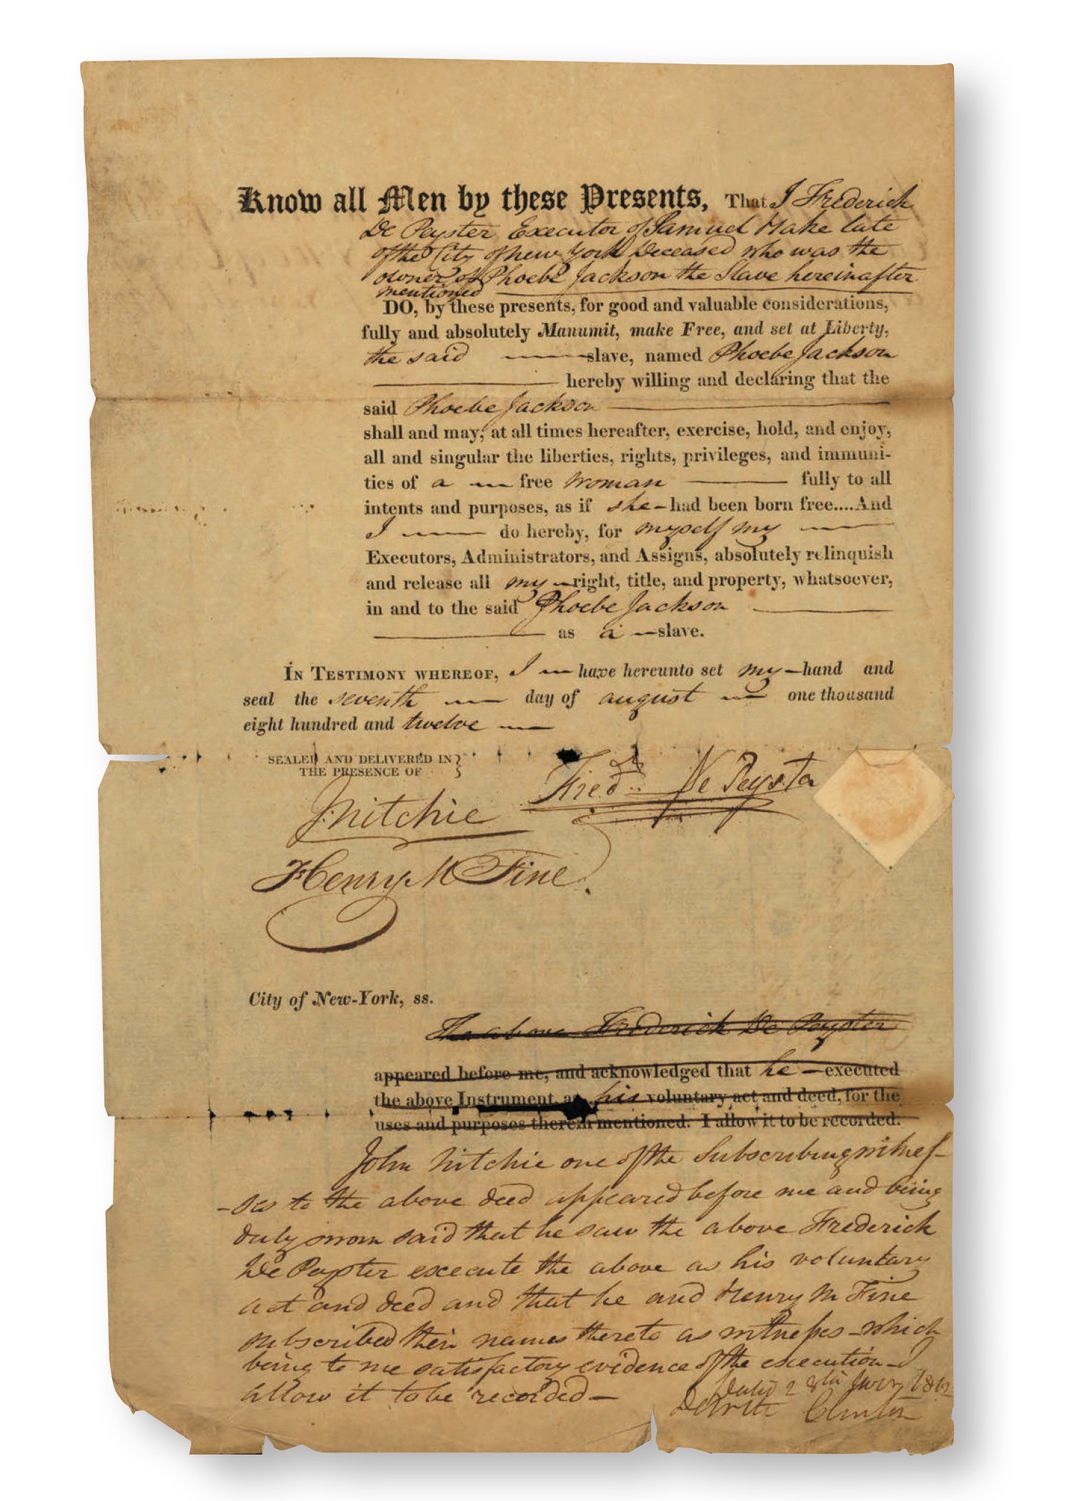 Know all Men by these Presents, That I Frederick
De Peyster Executor of Samuel Hake late
of the City of New York Deceased who was the
owner of Phoebe Jackson the Slave hereinafter
mentioned
DO, by these presents, for good and valuable considerations,
fully and absolutely Manumit, make Free, and set at Liberty,
the said slave, named Phoebe Jackson
hereby willing and declaring that the
said Phoebe Jackson
shall and may, at all times hereafter, exercise, hold, and enjoy,
all and singular the liberties, rights, privileges, and immuni-
ties of a free Woman fully to all
intents and purposes, as if she had been born free....And
I do hereby, for myself my
Executors, Administrators, and Assigns, absolutely relinquish
and release all my right, title, and property, whatsoever,
in and to the said Phoebe Jackson
as a slave.
IN TESTIMONY WHEREOF, I have hereunto set my hand and
seal the seventh day of august one thousand
eight hundred and twelve
SEALED AND DELIVERED IN
THE PRESENCE OF
Fred: De Peyster
J. Nitchie
Henry M Fine.
City of New-York, ss.
The above Frederick De Peyster
appeared before me, and acknowledged that he executed
the above Instrument, as his voluntary act and deed, for the
uses and purposes therein mentioned. I allow it to be recorded.
John Nitchie one of the Subscribing witnes-
-ses to the above deed appeared before me and being
duly sworn said that he saw the above Frederick
De Peyster execute the above as his voluntary
act and deed and that he and Henry M Fine
subscribed their names thereto as witnesses - which
being to me satisfactory evidence of the execution - I
allow it to be recorded -
Dated 28th
DeWitt Clinton